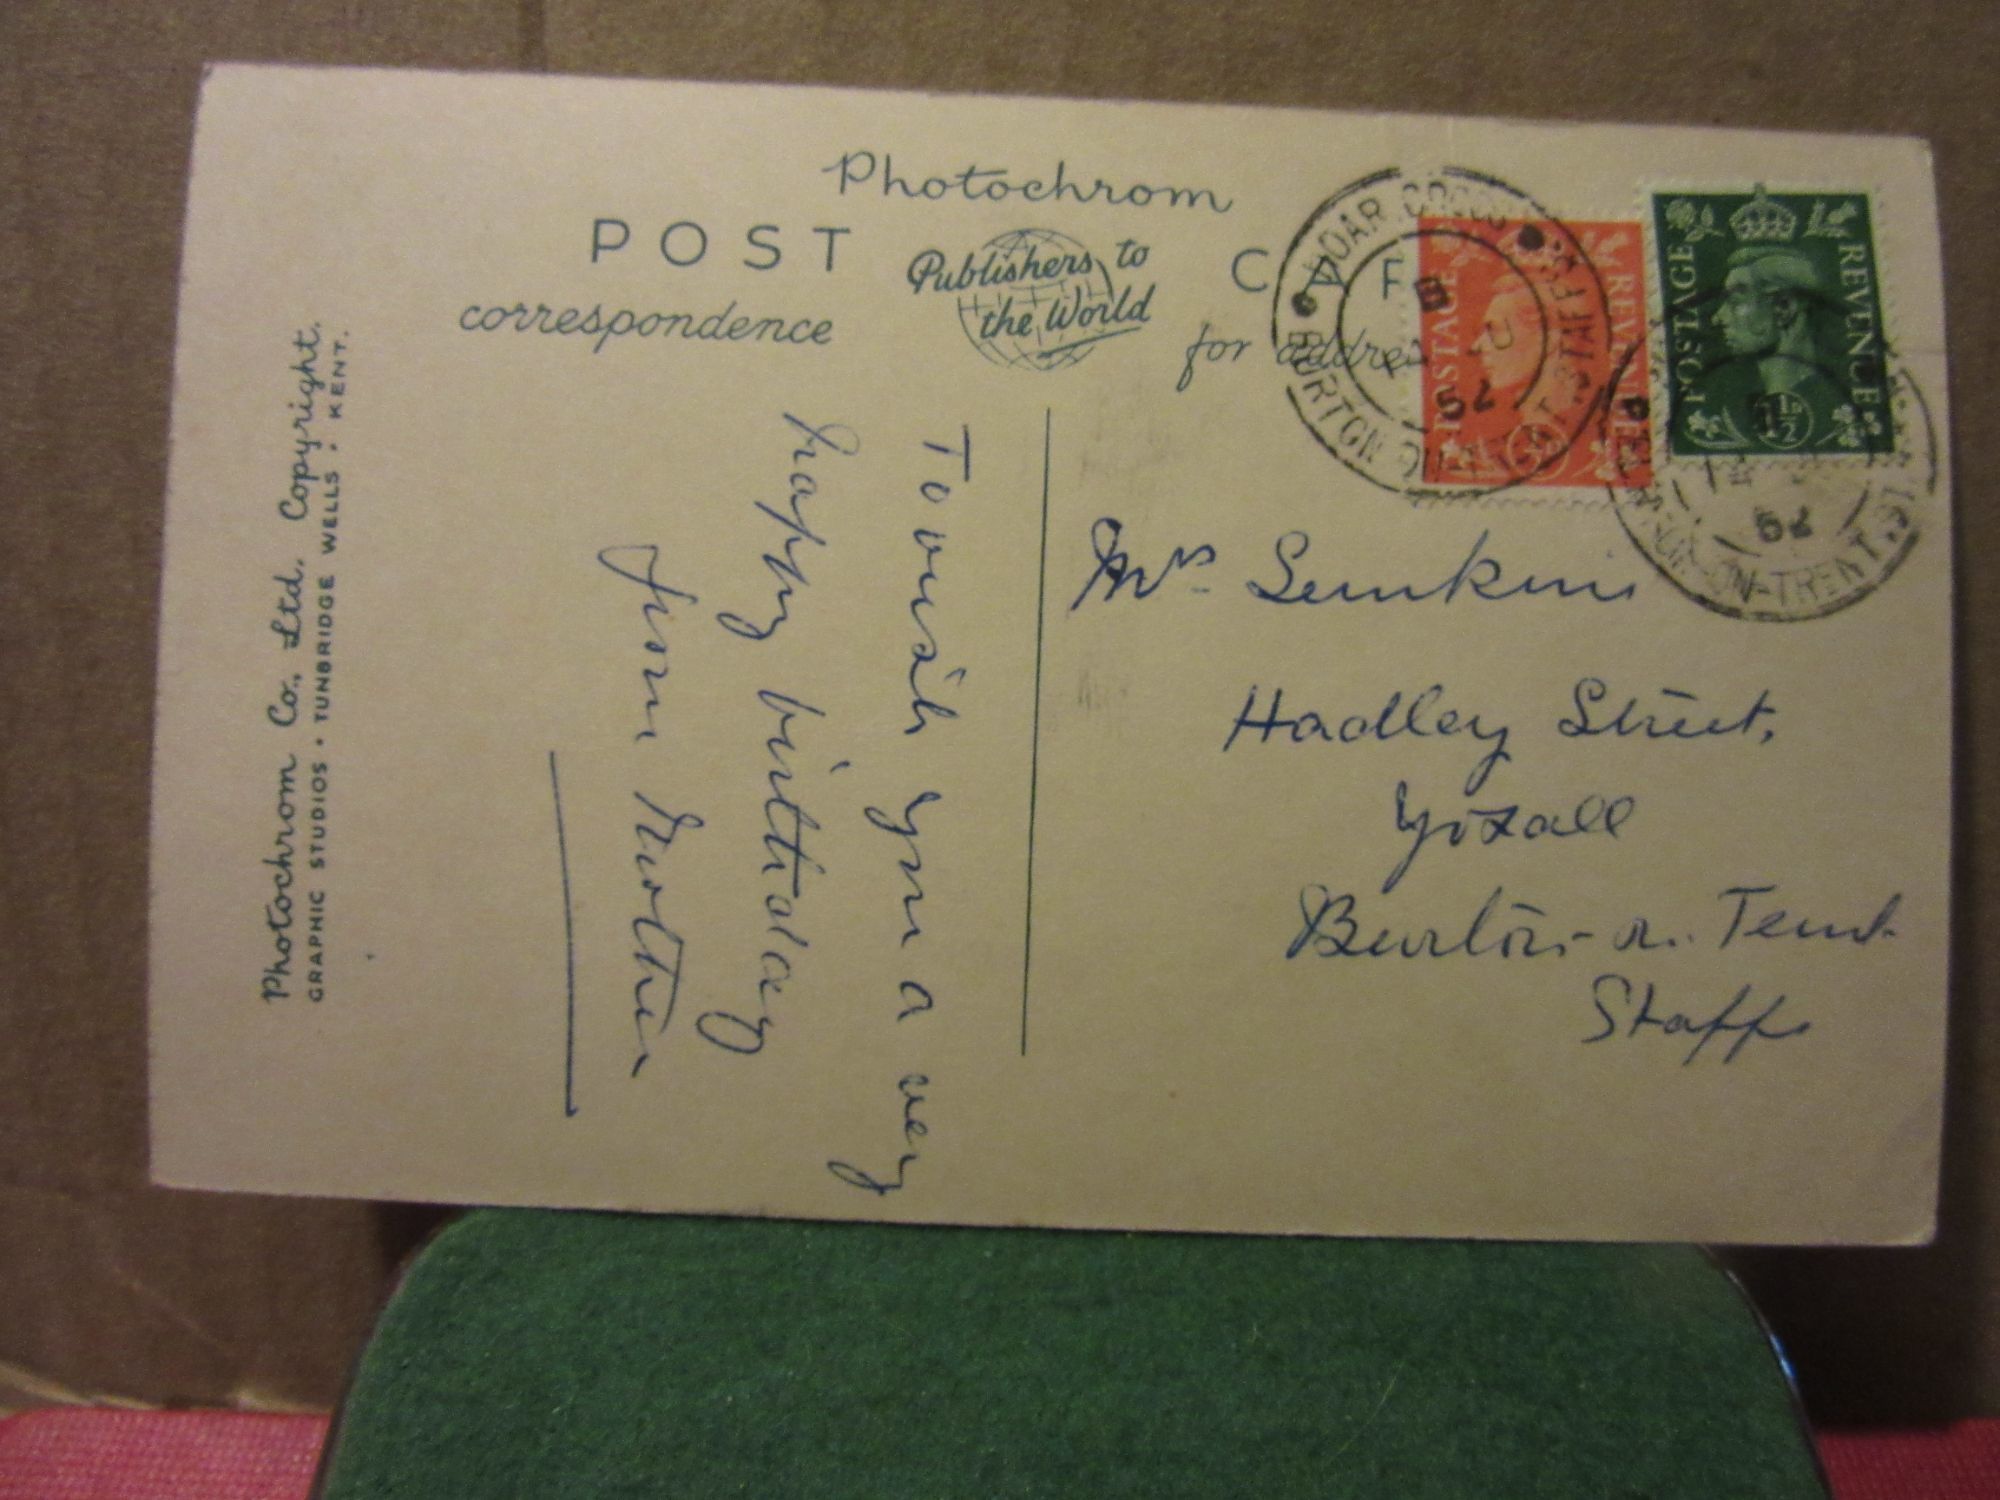 Photochrom
POST CAR
Publishers to
the World
correspondence
for address
Photochrom Co., Ltd. Copyright.
GRAPHIC STUDIOS · TUNBRIDGE WELLS : KENT.
To wish you a very
happy birthday
from Mother
Mrs
Hadley Street,
Yoxall
Burton-n. Trent
Staffs
HOAR CROSS
BURTON-ON-TRENT. STAFFS.
52
POSTAGE REVENUE
POSTAGE REVENUE
1½D
BURTON-ON-TRENT. ST
52